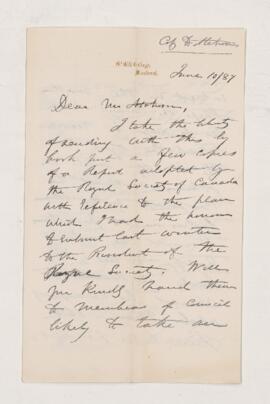 McGill College,
Montreal.
June 10/87
Dear Mr
I take the liberty
of sending with this by
book post a few copies
of a Report adopted by
the Royal Society of Canada
with reference to the plan
which I had the honour
to submit last winter
to the President of the
Royal Society. Will
you kindly hand them
to members of Council
likely to take an